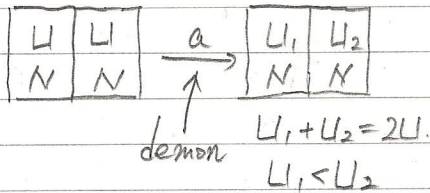 U U a U₁ U₂
N N N N
demon U₁+U₂=2U.
U₁<U₂